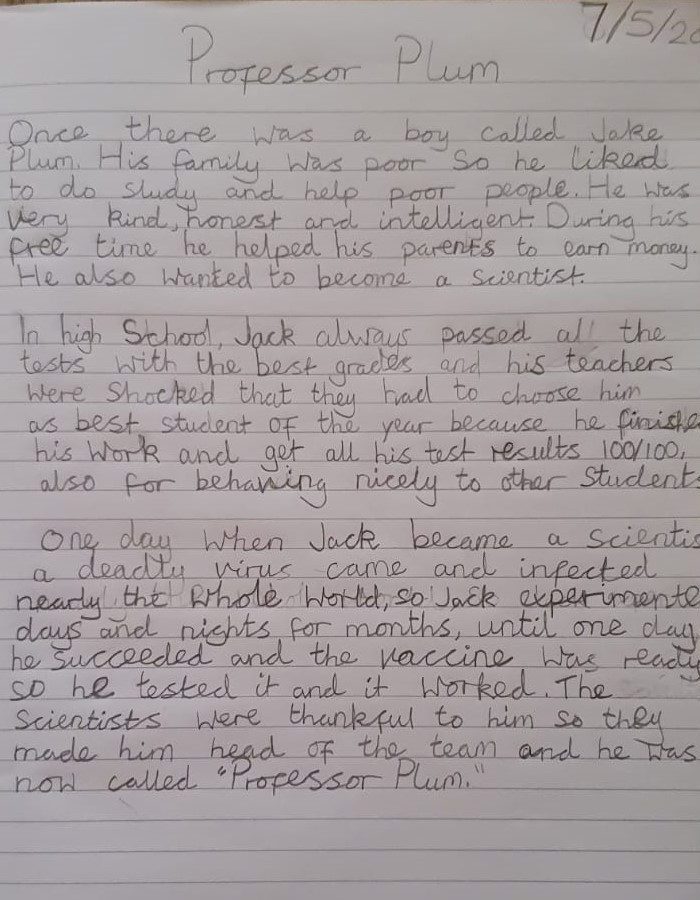 7/5/20
Professor Plum
Once there was a boy called Jake
Plum. His family was poor so he liked
to do study and help poor people. He was
very kind, honest and intelligent. During his
free time he helped his parents to earn money.
He also wanted to become a scientist.
In high School, Jack always passed all the
tests with the best grades and his teachers
were shocked that they had to choose him
as best student of the year because he finishe
his work and get all his test results 100/100,
also for behaving nicely to other students
One day when Jack became a scientis
a deadly virus came and infected
nearly the whole world, so Jack experimente
days and nights for months, until one day
he succeeded and the vaccine was ready
so he tested it and it worked. The
scientists were thankful to him so they
made him head of the team and he was
now called "Professor Plum."